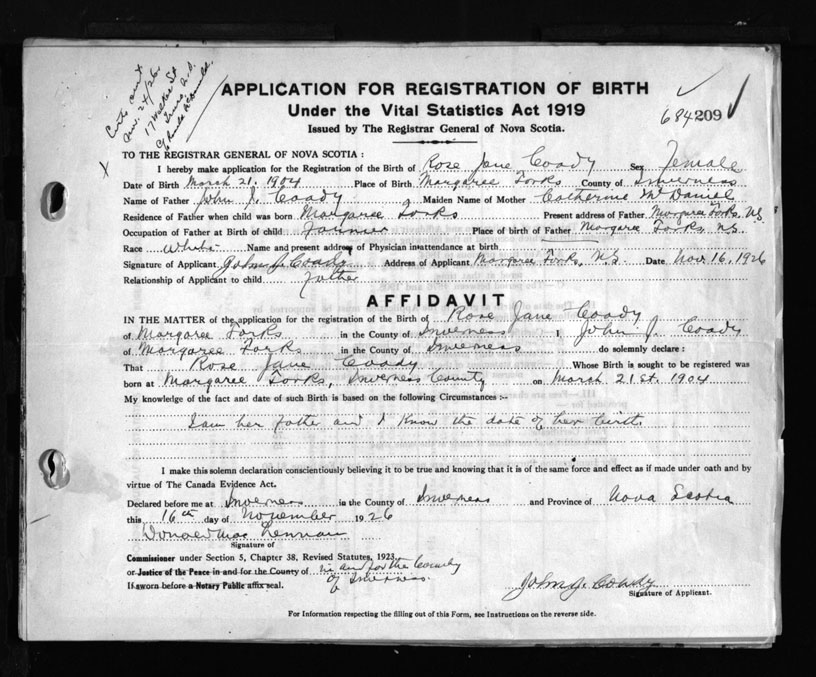 Certs sent
Nov. 24/26.
17
APPLICATION FOR REGISTRATION OF BIRTH
Under the Vital Statistics Act 1919
684209
Issued by The Registrar General of Nova Scotia.
TO THE REGISTRAR GENERAL OF NOVA SCOTIA :
I hereby make application for the Registration of the Birth of Rose Jane Coady Sex Female
Date of Birth March 21, 1904 Place of Birth Margaree Forks County of Inverness
Name of Father John J. Coady Maiden Name of Mother Catherine McDaniel
Residence of Father when child was born Margaree Forks Present address of Father Margaree Forks, N.S.
Occupation of Father at Birth of child Farmer Place of birth of Father Margaree Forks N.S.
Race White Name and present address of Physician in attendance at birth
Signature of Applicant John J. Coady Address of Applicant Margaree Forks, N.S. Date Nov. 16, 1926
Relationship of Applicant to child Father
AFFIDAVIT
IN THE MATTER of the application for the registration of the Birth of Rose Jane Coady
of Margaree Forks in the County of Inverness I John J. Coady
of Margaree Forks in the County of Inverness do solemnly declare :
That Rose Jane Coady Whose Birth is sought to be registered was
born at Margaree Forks, Inverness County on March 21st. 1904
My knowledge of the fact and date of such Birth is based on the following Circumstances :-
I am her father and I know the date of her birth.
I make this solemn declaration conscientiously believing it to be true and knowing that it is of the same force and effect as if made under oath and by
virtue of The Canada Evidence Act.
Declared before me at Inverness in the County of Inverness and Province of Nova Scotia
this 16th day of November 1926
Donald MacLennan
Signature of
Commissioner under Section 5, Chapter 38, Revised Statutes, 1923.
or Justice of the Peace in and for the County of in and for the County
of Inverness.
If sworn before a Notary Public affix seal.
John J. Coady
Signature of Applicant.
For Information respecting the filling out of this Form, see Instructions on the reverse side.